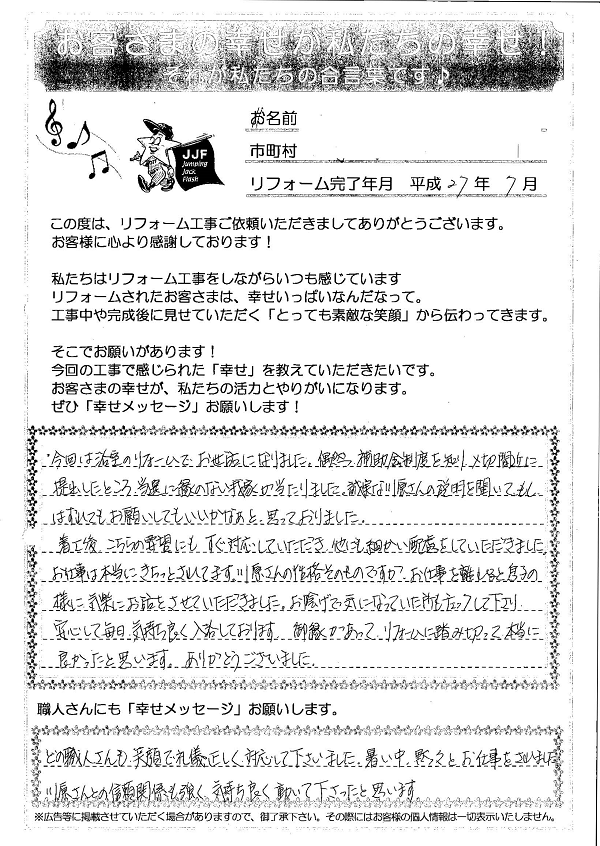 お客さまの幸せが私たちの幸せ！
それが私たちの合言葉です♪
JJF
Jumping
Jack
Flash
お名前
市町村
リフォーム完了年月 平成27年 7月
この度は、リフォーム工事ご依頼いただきましてありがとうございます。
お客様に心より感謝しております！
私たちはリフォーム工事をしながらいつも感じています
リフォームされたお客さまは、幸せいっぱいなんだなって。
工事中や完成後に見せていただく「とっても素敵な笑顔」から伝わってきます。
そこでお願いがあります！
今回の工事で感じられた「幸せ」を教えていただきたいです。
お客さまの幸せが、私たちの活力とやりがいになります。
ぜひ「幸せメッセージ」お願いします！
今回は浴室のリフォームでお世話になりました。偶然、補助金制度を知り、〆切間近に
提出したところ、当選に縁のない我家が当たりました。誠実な川原さんの説明を聞いてもし
はずれてもお願いしてもいいかなあと思っておりました。
着工後、こちらの要望にもすぐ対応していただき、他にも細かい配慮をしていただきました。
お仕事は本当にきちっとされてます。川原さんの性格そのものですが、お仕事を離れると息子の
様に気楽にお話をさせていただきました。お陰げで気になっていた所もクリアして下さり
安心して毎日、気持ち良く入浴しております。御縁があって、リフォームに踏み切って本当に
良かったと思います。ありがとうございました。
職人さんにも「幸せメッセージ」お願いします。
どの職人さんも笑顔で礼儀正しく対応して下さいました。暑い中、黙々とお仕事をされました
川原さんとの信頼関係も強く、気持ち良く動いて下さったと思います。
※広告等に掲載させていただく場合がありますので、御了承下さい。その際にはお客様の個人情報は一切表示いたしません。